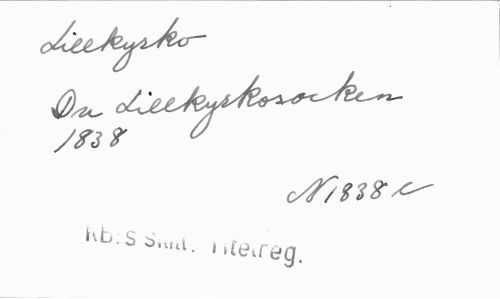 Lillkyrko
Du Lillkyrkosocken
1838
N 1838 c
KB:s Titelreg.